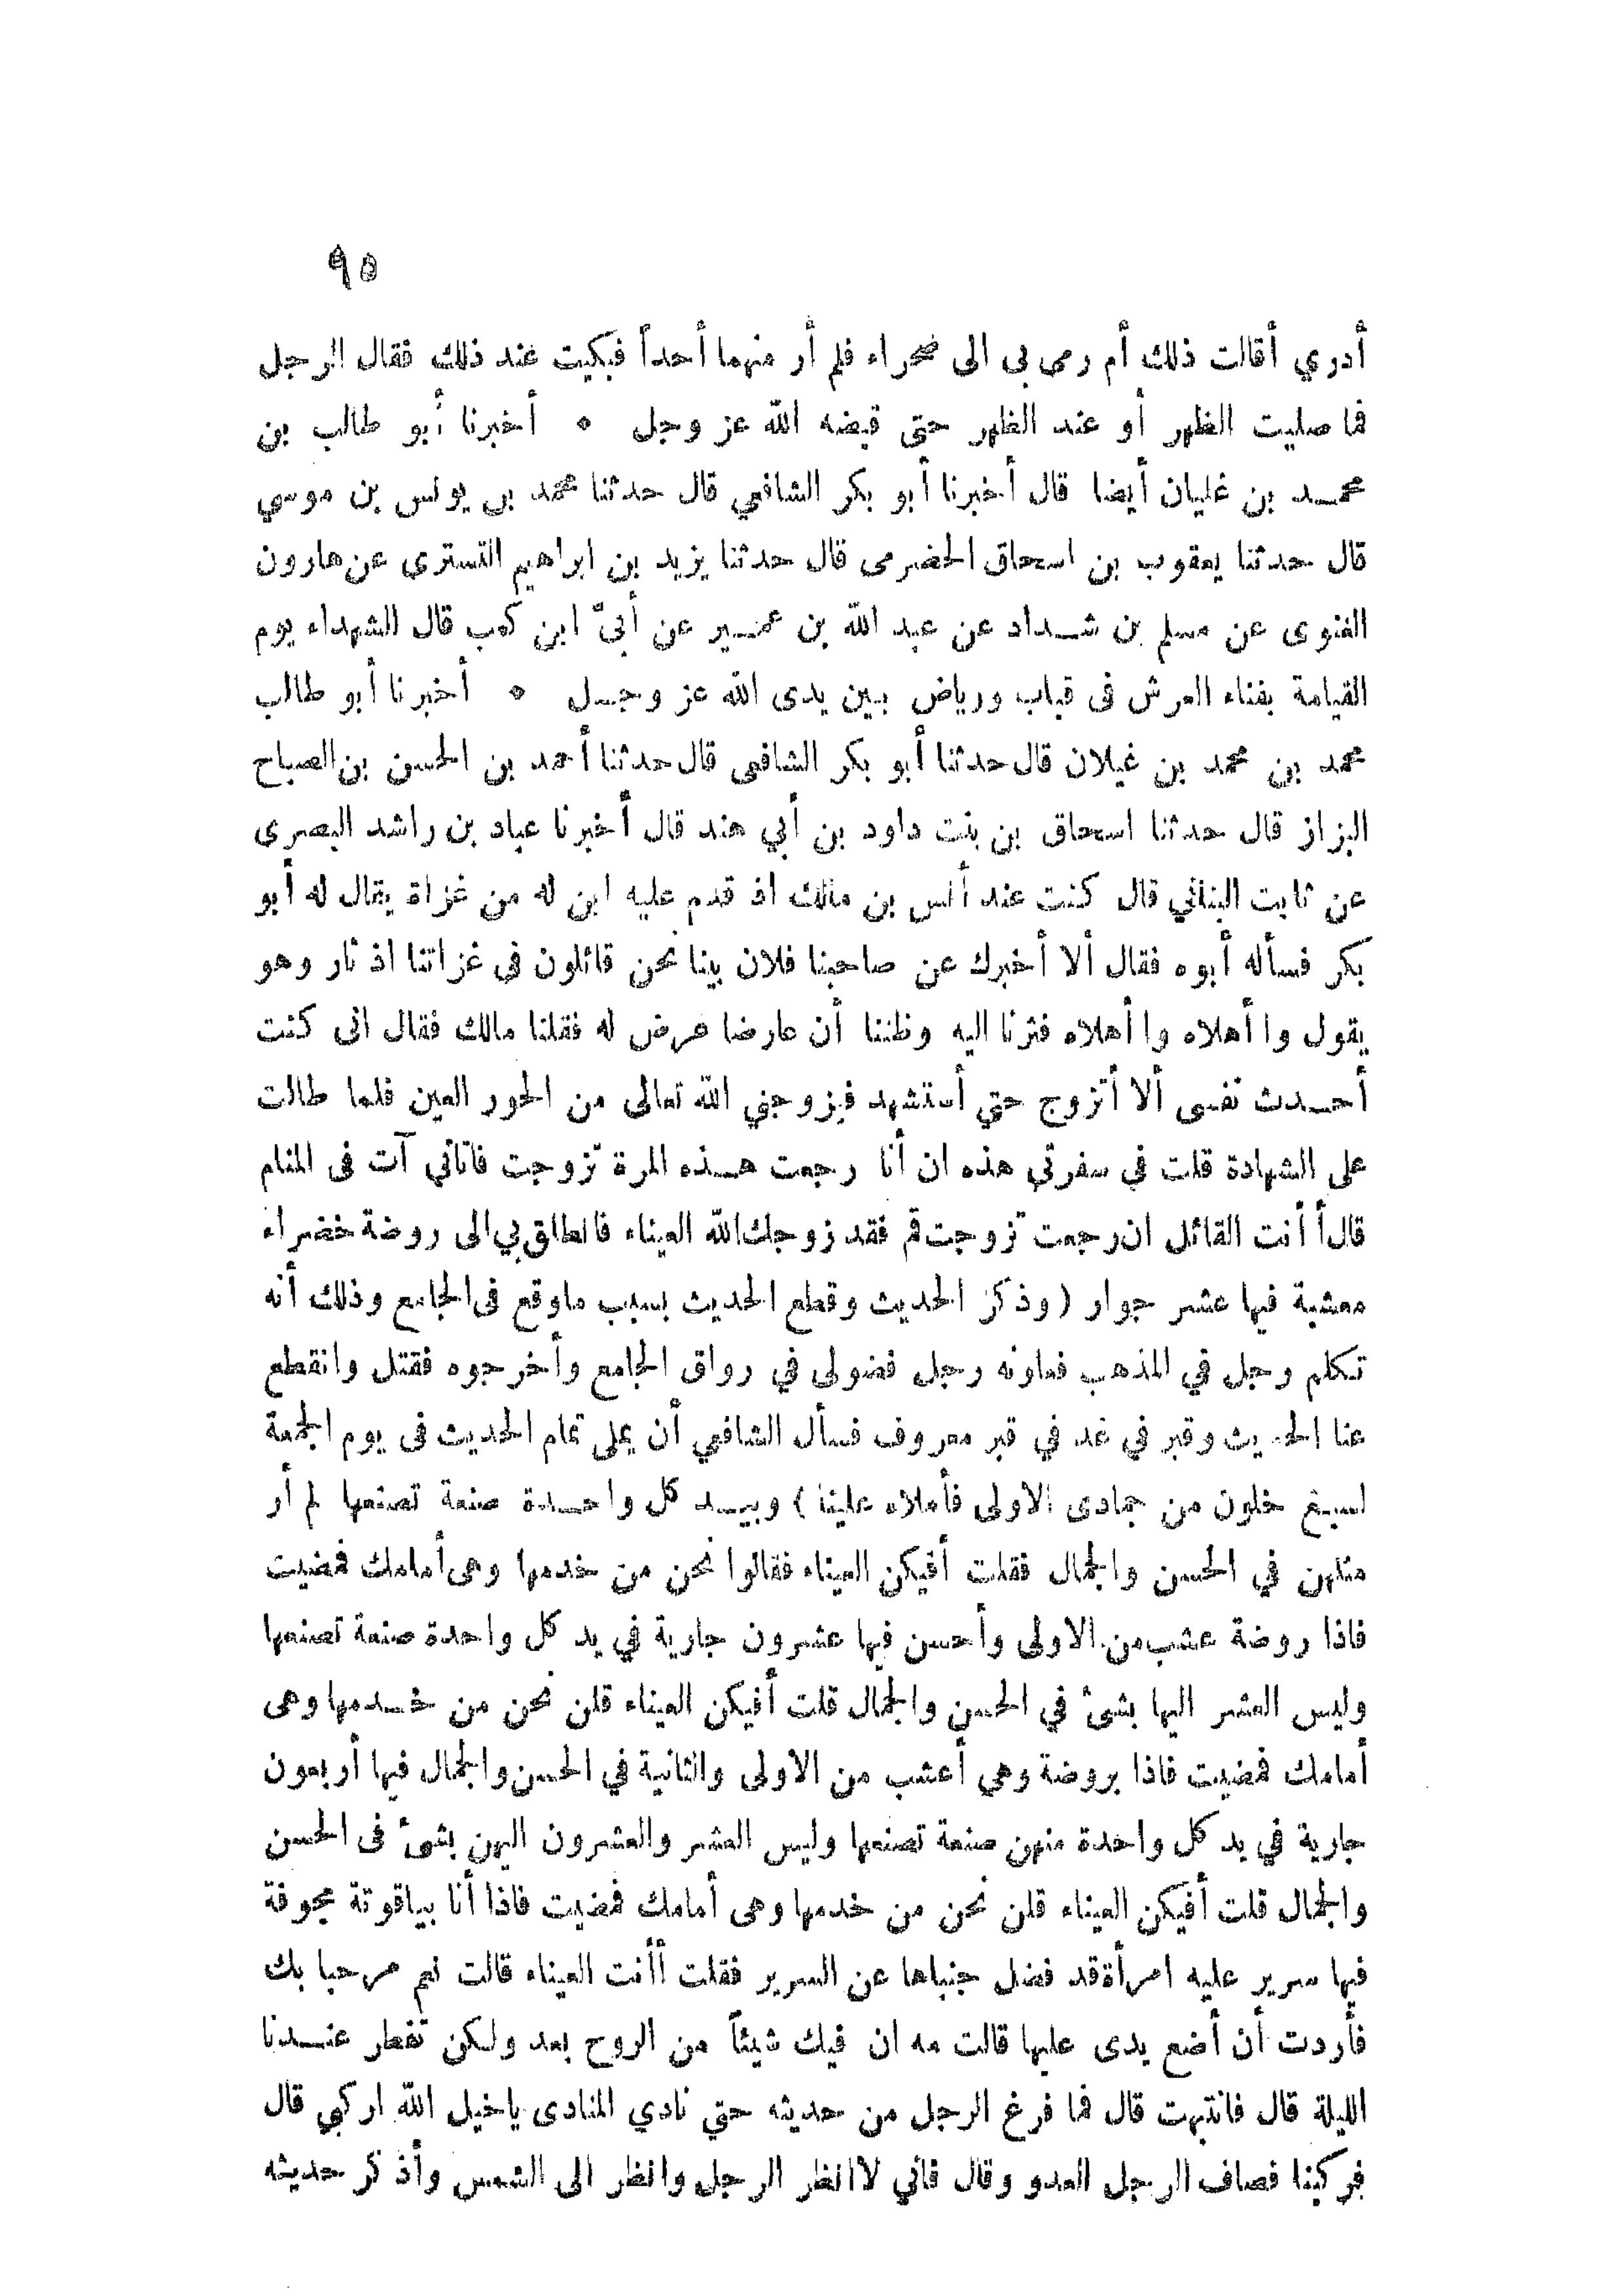 ٩٥
أدري أقالت ذلك أم رمى بى الى صحراء فلم أر منهما أحداً فبكيت عند ذلك فقال الرجل
فما صليت الظهر أو عند الظهر حتى قبضه الله عز وجل ٥ أخبرنا أبو طالب بن
محمد بن غليان أيضا قال أخبرنا أبو بكر الشافعي قال حدثنا محمد بن يونس بن موسي
قال حدثنا يعقوب بن اسحاق الحضرمى قال حدثنا يزيد بن ابراهيم التسترى عن هارون
الغنوى عن مسلم بن شداد عن عبد الله بن عمير عن أبىّ ابن كعب قال الشهداء يوم
القيامة بفناء العرش فى قباب ورياض بين يدى الله عز وجل ٥ أخبرنا أبو طالب
محمد بن محمد بن غيلان قال حدثنا أبو بكر الشافعى قال حدثنا أحمد بن الحسن بن الصباح
البزاز قال حدثنا اسحاق بن بنت داود بن أبي هند قال أخبرنا عباد بن راشد البصرى
عن ثابت البناني قال كنت عند أنس بن مالك اذ قدم عليه ابن له من غزاة يقال له أبو
بكر فسأله أبوه فقال ألا أخبرك عن صاحبنا فلان بينا نحن قائلون فى غزاتنا اذ ثار وهو
يقول وا أهلاه وا أهلاه فثرنا اليه وظننا أن عارضا عرض له فقلنا مالك فقال انى كنت
أحدث نفسى ألا أتزوج حتي أستشهد فيزوجني الله تعالى من الحور العين فلما طالت
على الشهادة قلت في سفرتي هذه ان أنا رجعت هذه المرة تزوجت فاتاني آت فى المنام
قال أ أنت القائل ان رجعت تزوجت قم فقد زوجك الله العيناء فانطلق بي الى روضة خضراء
معشبة فيها عشر جوار (وذكر الحديث وقطع الحديث بسبب ماوقع فى الجامع وذلك أنه
تكلم رجل في المذهب فعاونه رجل فضولى في رواق الجامع وأخرجوه فقتل وانقطع
عنا الحديث وقبر في غد في قبر معروف فسأل الشافعي أن يملى تمام الحديث فى يوم الجمعة
لسبع خلون من جمادى الاولى فأملاه علينا) وبيد كل واحدة صنعة تصنعها لم أر
مثلهن في الحسن والجمال فقلت أفيكن العيناء فقالوا نحن من خدمها وهى أمامك فمضيت
فاذا روضة عشب من الاولى وأحسن فيها عشرون جارية في يد كل واحدة صنعة تصنعها
وليس العشر اليها بشئ في الحسن والجمال قلت أفيكن العيناء قلن نحن من خدمها وهى
أمامك فمضيت فاذا بروضة وهي أعشب من الاولى والثانية في الحسن والجمال فيها أربعون
جارية في يد كل واحدة منهن صنعة تصنعها وليس العشر والعشرون اليهن بشئ فى الحسن
والجمال قلت أفيكن العيناء قلن نحن من خدمها وهى أمامك فمضيت فاذا أنا بياقوتة مجوفة
فيها سرير عليه امرأة قد فضل جنباها عن السرير فقلت أأنت العيناء قالت نعم مرحبا بك
فأردت أن أضع يدى عليها قالت مه ان فيك شيئاً من الروح بعد ولكن تفطر عندنا
الليلة قال فانتبهت قال فما فرغ الرجل من حديثه حتي نادي المنادى ياخيل الله اركبي قال
فركبنا فصاف الرجل العدو وقال فاني لاانظر الرجل وانظر الى الشمس وأذكر حديثه